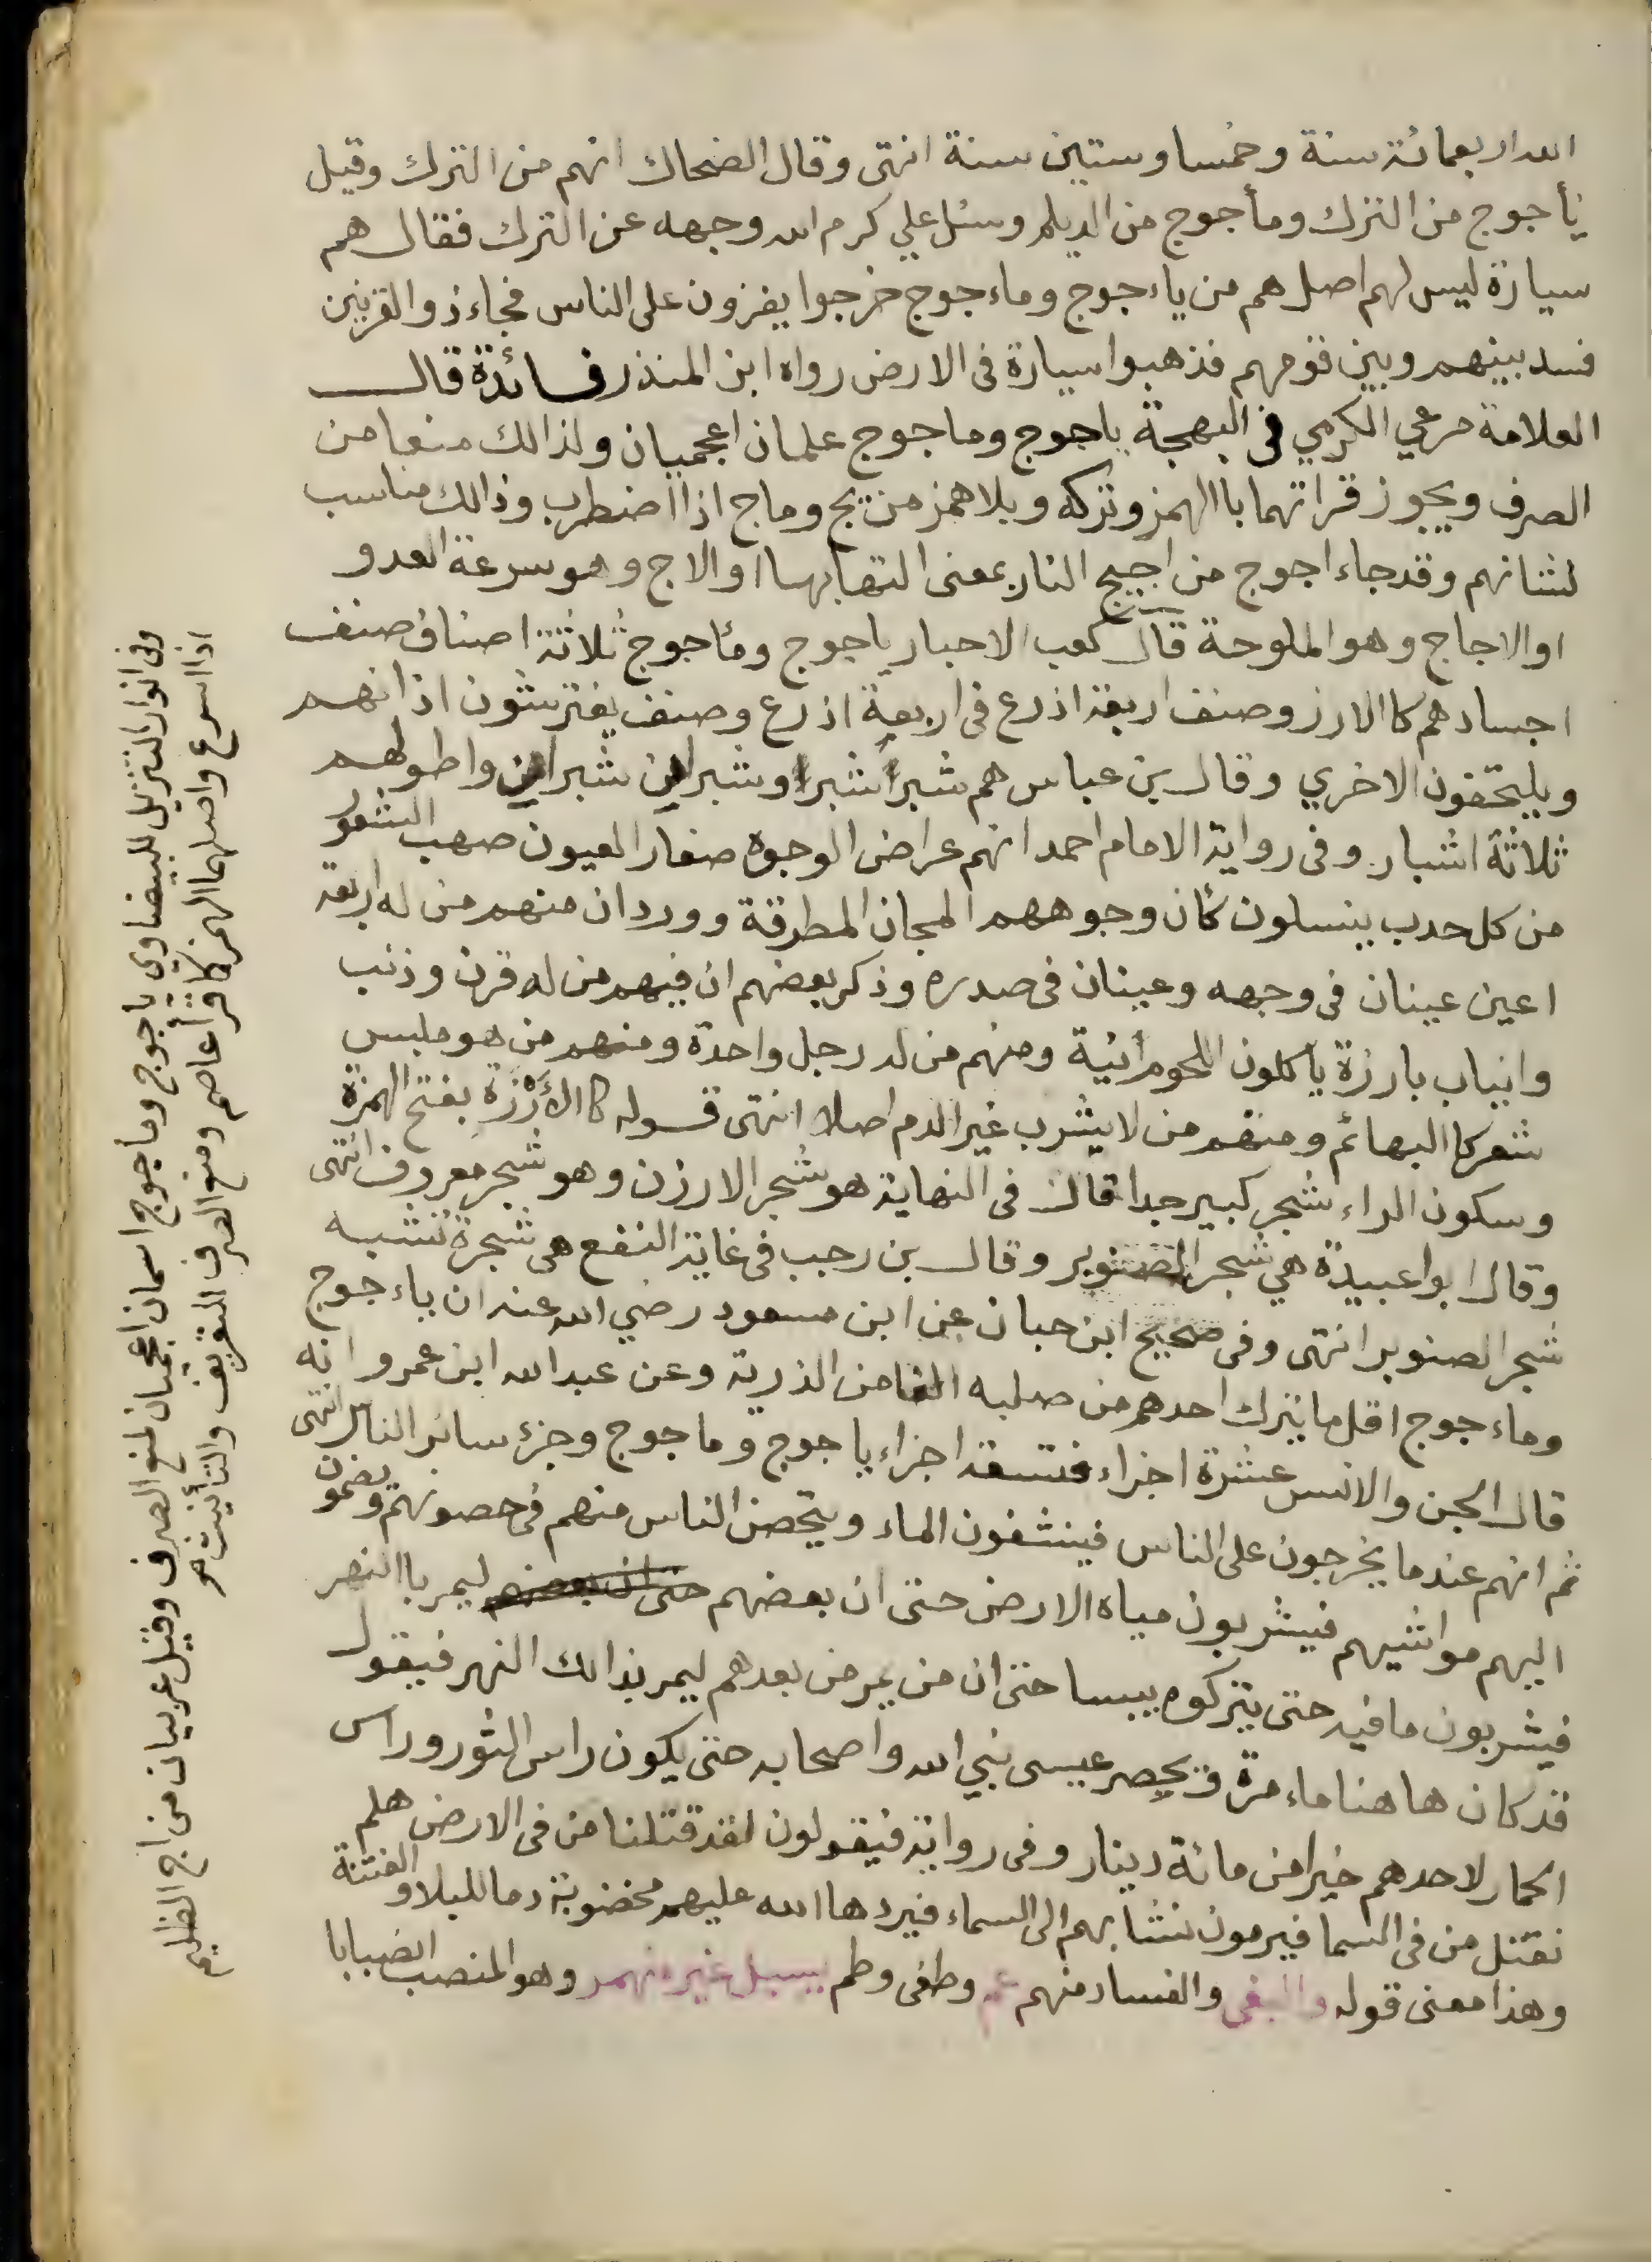 الله اربعمائة سنة وخمسا وستين سنة انتهى وقال الضحاك انهم من الترك وقيل
يأجوج من الترك ومأجوج من الديلم وسئل علي كرم الله وجهه عن الترك فقال هم
سيارة ليس لهم اصل هم من ياءجوج وماءجوج خرجوا يغزون على الناس فجاء ذو القرنين
فسد بينهم وبين قومهم فذهبوا سيارة فى الارض رواه ابن المنذر فائدة قال
العلامة مرعي الكرمي فى البهجة ياجوج وماجوج علمان اعجميان ولذالك منعا من
الصرف ويجوز قراتهما باالهمز وتركه وبلا همز من يج وماج اذا اضطرب وذالك مناسب
لشانهم وقد جاء اجوج من اجيج النار بمعنى التهابها او الاج وهو سرعة العدو
او الاجاج وهو الملوحة قال كعب الاحبار ياجوج ومأجوج ثلاثة اصناف صنف
اجسادهم كاالارز وصنف اربعة اذرع فى اربعة اذرع وصنف يفترشون اذانهم
ويلتحفون الاخري وقال بن عباس هم شبرا شبرا وشبرين شبرين واطولهم
ثلاثة اشبار وفى رواية الامام احمد انهم عراض الوجوه صغار العيون صهب الشعور
من كل حدب ينسلون كأن وجوههم المجان المطرقة وورد ان منهم من له اربعة
اعين عينان فى وجهه وعينان فى صدره وذكر بعضهم ان فيهم من له قرن وذنب
وانياب بارزة ياكلون اللحوم نية ومنهم من له رجل واحدة ومنهم من هو ملبس
شعر كاالبهائم ومنهم من لا يشرب غير الدم اصلا انتهى قوله كاالأرزة بفتح الهمزة
وسكون الراء شجر كبير جدا قال فى النهاية هو شجر الارزن وهو شجر معروف انتهى
وقال ابوا عبيدة هي شجر الصنوبر وقال بن رجب فى غاية النفع هى شجرة تشبه
شجر الصنوبر انتهى وفى صحيح ابن حبان عن ابن مسعود رضي الله عنه ان ياءجوج
وماءجوج اقل ما يترك احدهم من صلبه الفا من الذرية وعن عبد الله ابن عمرو انه
قال الجن والانس عشرة اجزاء فتسعة اجزاء ياجوج وماجوج وجزء سائر الناس انتهى
ثم انهم عندما يخرجون على الناس فينشفون الماء ويتحصن الناس منهم فى حصونهم ويضمون
اليهم مواشيهم فيشربون مياه الارض حتى ان بعضهم حتى ان بعضهم ليمر باالنهر
فيشربون ما فيه حتى يتركوه يبسا حتى ان من يمر من بعدهم ليمر بذالك النهر فيقول
قد كان هاهنا ماء مرة ويحصر عيسى نبي الله واصحابه حتى يكون راس الثور وراس
الحمار لاحدهم خيرا من مائة دينار وفى رواية فيقولون لقد قتلنا من فى الارض هلم
نقتل من فى السما فيرمون نشابهم الى السماء فيردها الله عليهم مخضوبة دما للبلا والفتنة
وهذا معنى قوله والبغى والفساد منهم عم وطغى وطم بسيل غير منهمر وهو المنصب انصبابا
وفى انوار التنزيل للبيضاوي ياجوج وماجوج اسمان اعجميان لمنع الصرف وقيل عربيان من اج الظليم
اذا اسرع واصلهما الهمز كما قرأ عاصم ومنع الصرف للتعريف والتأنيث هو